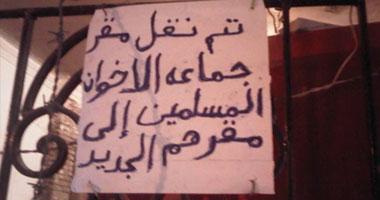 تم نقل مقر
جماعه الاخوان
المسلمين إلى
مقرهم الجديد